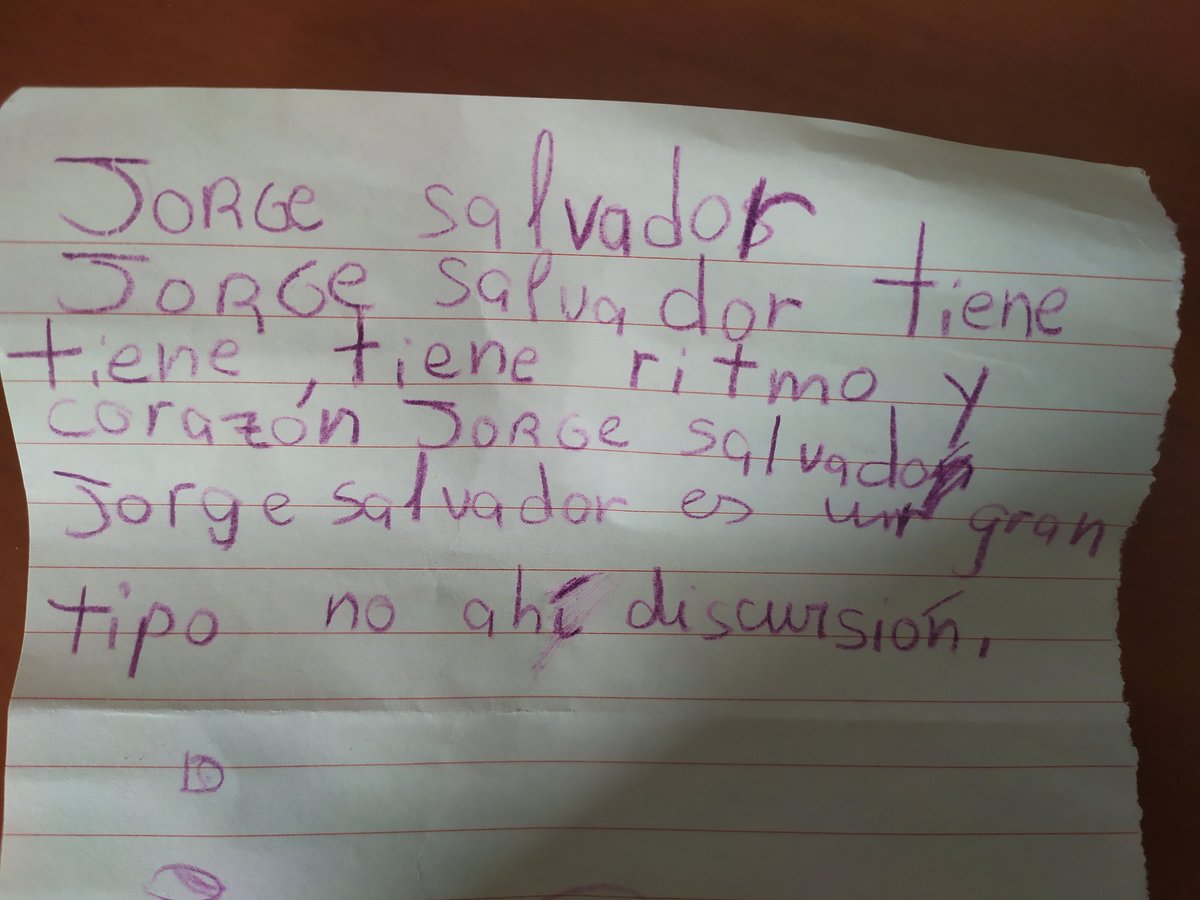 JORGe salvador
JORGe salvador tiene
tiene, tiene ritmo y
corazón JORGe salvador
Jorge salvador es un gran
tipo no ahí discursión.